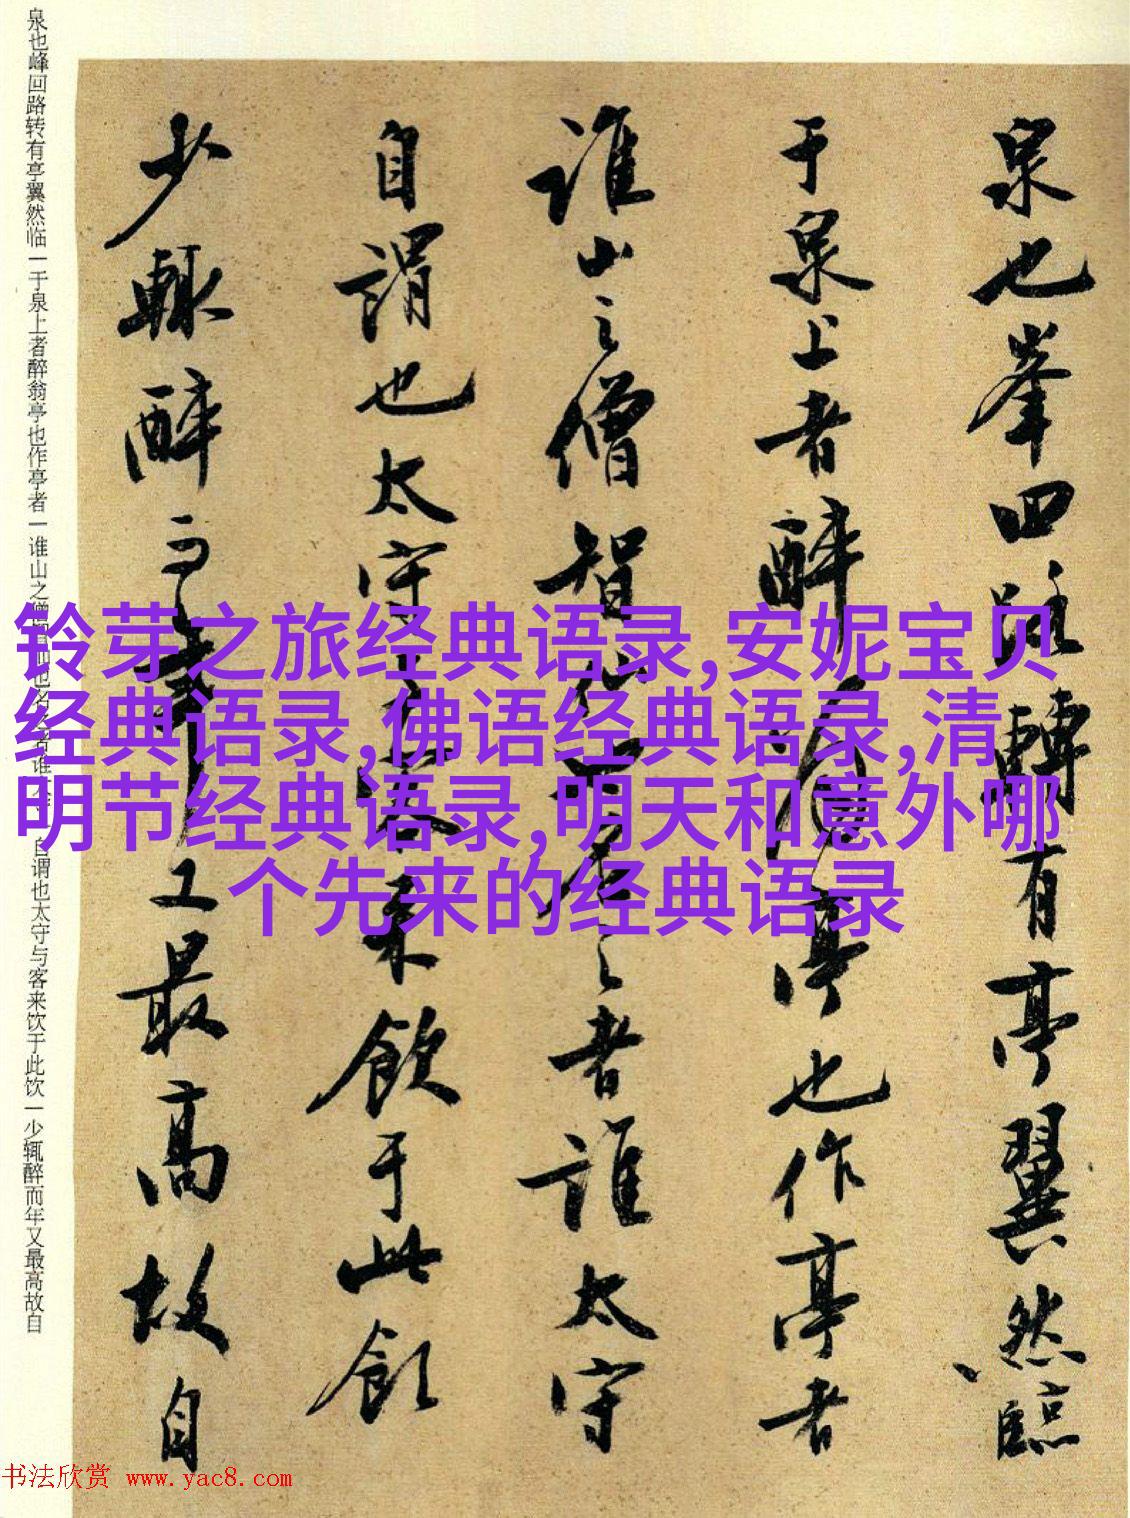 泉也峯回路轉有亭翼然臨
于泉上者醉翁亭也作亭者
誰山之僧智仙也名之者誰太守
自謂也太守與客來飲于此飲
少輒醉而年又最高故自
泉也峰回路转有亭翼然临一于泉上者醉翁亭也作亭者一谁山之僧智仙也名之者谁太守 自谓也太守与客来饮于此饮一少辄醉而年又最高故自
铃芽之旅经典语录,安妮宝贝
经典语录,佛语经典语录,清
明节经典语录,明天和意外哪
个先来的经典语录
书法欣赏 www.yac8.com